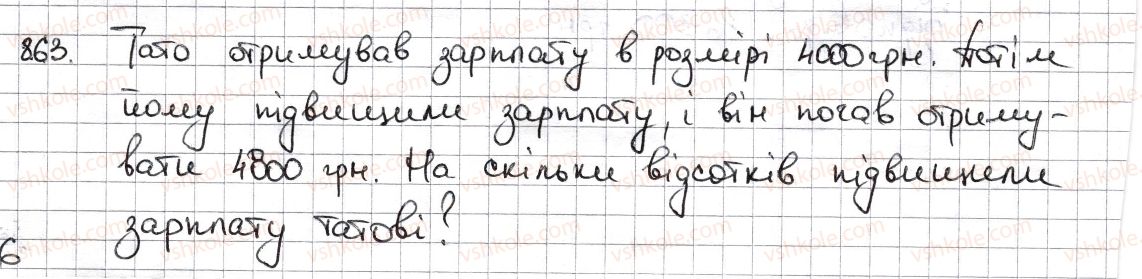 863. Тато отримував зарплату в розмірі 4000 грн. Потім
йому підвищили зарплату, і він почав отриму-
вати 4800 грн. На скільки відсотків підвищили
зарплату татові?
6